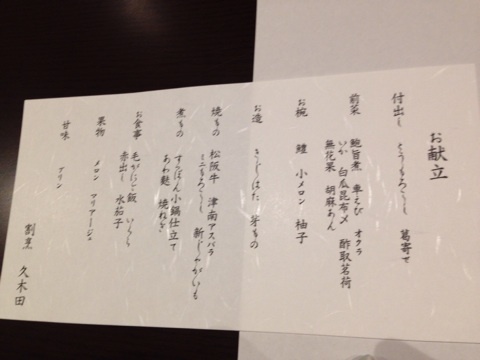 お献立
付出し とうもろこし 葛寄せ
前菜 鮑旨煮 車えび オクラ
いか 白瓜昆布〆 酢取茗荷
無花果 胡麻あん
お椀 鱧 小メロン 柚子
お造 きじはた 芽もの
焼もの 松阪牛 津南アスパラ
ミニもろこし 新じゃがいも
煮もの すっぽん小鍋仕立て
あわ麩 焼ねぎ
お食事 毛がにご飯 いくら
赤出し 水茄子
果物 メロン マリアージュ
甘味 プリン
割烹 久木田